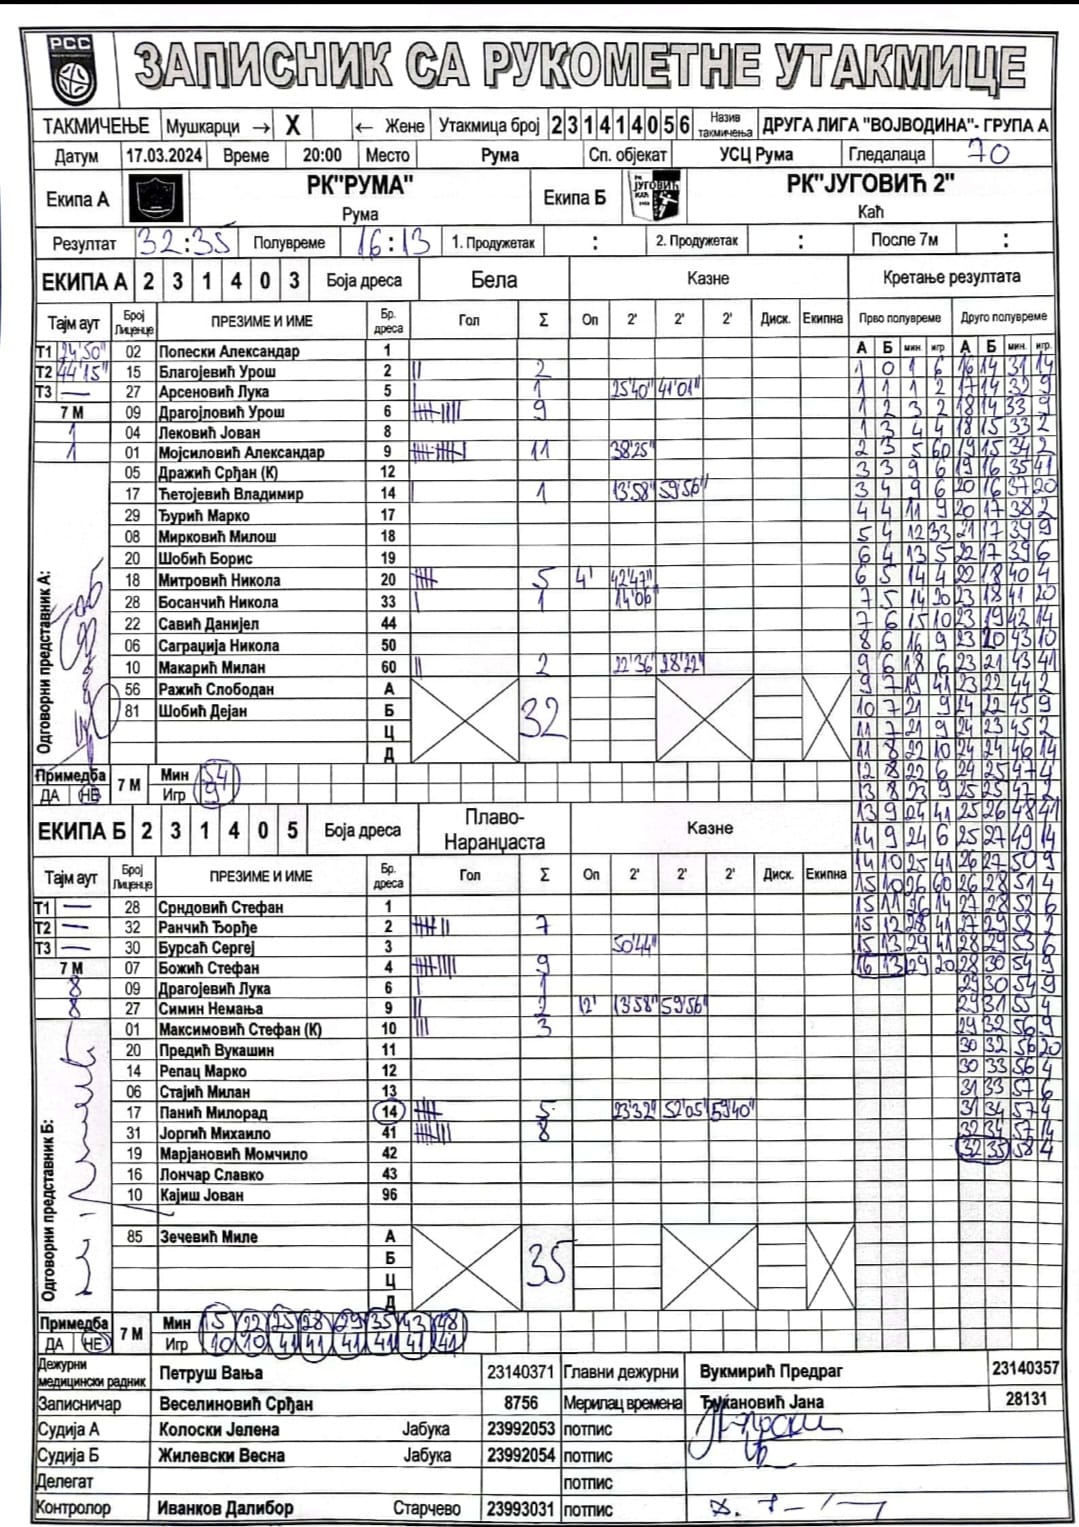 РСС
ЗАПИСНИК СА РУКОМЕТНЕ УТАКМИЦЕ
ТАКМИЧЕЊЕ Мушкарци → X ← Жене Утакмица број 2 3 1 4 1 4 0 5 6 Назив такмичења ДРУГА ЛИГА "ВОЈВОДИНА"- ГРУПА А
Датум 17.03.2024 Време 20:00 Место Рума Сп. објекат УСЦ Рума Гледалаца 70
Екипа А РК"РУМА" Рума Екипа Б РК"ЈУГОВИЋ 2" Каћ
Резултат 32:35 Полувреме 16:13 1. Продужетак : 2. Продужетак : После 7м :
ЕКИПА А 2 3 1 4 0 3 Боја дреса Бела Казне Кретање резултата
Тајм аут Број Лиценце ПРЕЗИМЕ И ИМЕ Бр. дреса Гол Σ Оп 2' 2' 2' Диск. Екипна Прво полувреме Друго полувреме
А Б мин. игр А Б мин. игр.
Т1 24'50" 02 Попески Александар 1
Т2 44'15" 15 Благојевић Урош 2 || 2
Т3 — 27 Арсеновић Лука 5 | 1 25'40" 41'01"
7 М 09 Драгојловић Урош 6 9
1 04 Лековић Јован 8
1 01 Мојсиловић Александар 9 11 38'25"
05 Дражић Срђан (К) 12
17 Ћетојевић Владимир 14 | 1 13'58" 59'56"
29 Ђурић Марко 17
08 Мирковић Милош 18
20 Шобић Борис 19
18 Митровић Никола 20 5 4' 42'47"
28 Босанчић Никола 33 | 1 14'06"
22 Савић Данијел 44
06 Саграџија Никола 50
10 Макарић Милан 60 || 2 22'36" 28'22"
56 Ражић Слободан А
81 Шобић Дејан Б 32
Ц
Д
Одговорни представник А:
Примедба ДА НЕ 7 М Мин 54
Игр 9
1 0 1 6 16 14 31 14
1 1 1 2 17 14 32 9
1 2 3 2 18 14 33 9
1 3 4 4 18 15 33 2
2 3 5 60 19 15 34 2
3 3 9 6 19 16 35 41
3 4 9 6 20 16 37 20
4 4 11 9 20 17 38 2
5 4 12 33 21 17 39 9
6 4 13 5 22 17 39 6
6 5 14 4 22 18 40 4
7 5 14 20 23 18 41 20
7 6 15 10 23 19 42 14
8 6 16 9 23 20 43 10
9 6 18 6 23 21 43 41
9 7 19 41 23 22 44 2
10 7 21 9 24 22 45 9
11 7 21 9 24 23 45 2
11 8 22 10 24 24 46 14
12 8 22 6 24 25 47 4
13 8 23 9 25 25 47 2
13 9 24 41 25 26 48 41
14 9 24 6 25 27 49 14
14 10 25 41 26 27 50 9
15 10 26 60 26 28 51 4
15 11 26 14 27 28 52 6
15 12 28 41 27 29 52 2
15 13 29 41 28 29 53 6
16 13 29 20 28 30 54 9
29 30 54 9
29 31 55 4
29 32 56 9
30 32 56 20
30 33 56 4
31 33 57 6
31 34 57 4
32 34 57 14
32 35 58 4
ЕКИПА Б 2 3 1 4 0 5 Боја дреса Плаво-Наранџаста Казне
Тајм аут Број Лиценце ПРЕЗИМЕ И ИМЕ Бр. дреса Гол Σ Оп 2' 2' 2' Диск. Екипна
Т1 — 28 Срндовић Стефан 1
Т2 — 32 Ранчић Ђорђе 2 7
Т3 — 30 Бурсаћ Сергеј 3 50'44"
7 М 07 Божић Стефан 4 9
8 09 Драгојевић Лука 6 | 1
8 27 Симин Немања 9 || 2 12' 13'58" 59'56"
01 Максимовић Стефан (К) 10 ||| 3
20 Предић Вукашин 11
14 Репац Марко 12
06 Стајић Милан 13
17 Панић Милорад 14 5 23'32" 52'05" 59'40"
31 Јоргић Михаило 41 8
19 Марјановић Момчило 42
16 Лончар Славко 43
10 Кајиш Јован 96
85 Зечевић Миле А
Б 35
Ц
Д
Одговорни представник Б:
Примедба ДА НЕ 7 М Мин 15 22 25 28 29 35 43 48
Игр 10 10 41 41 41 41 41 41
Дежурни медицински радник Петруш Вања 23140371 Главни дежурни Вукмирић Предраг 23140357
Записничар Веселиновић Срђан 8756 Мерилац времена Ђукановић Јана 28131
Судија А Колоски Јелена Јабука 23992053 потпис
Судија Б Жилевски Весна Јабука 23992054 потпис
Делегат потпис
Контролор Иванков Далибор Старчево 23993031 потпис